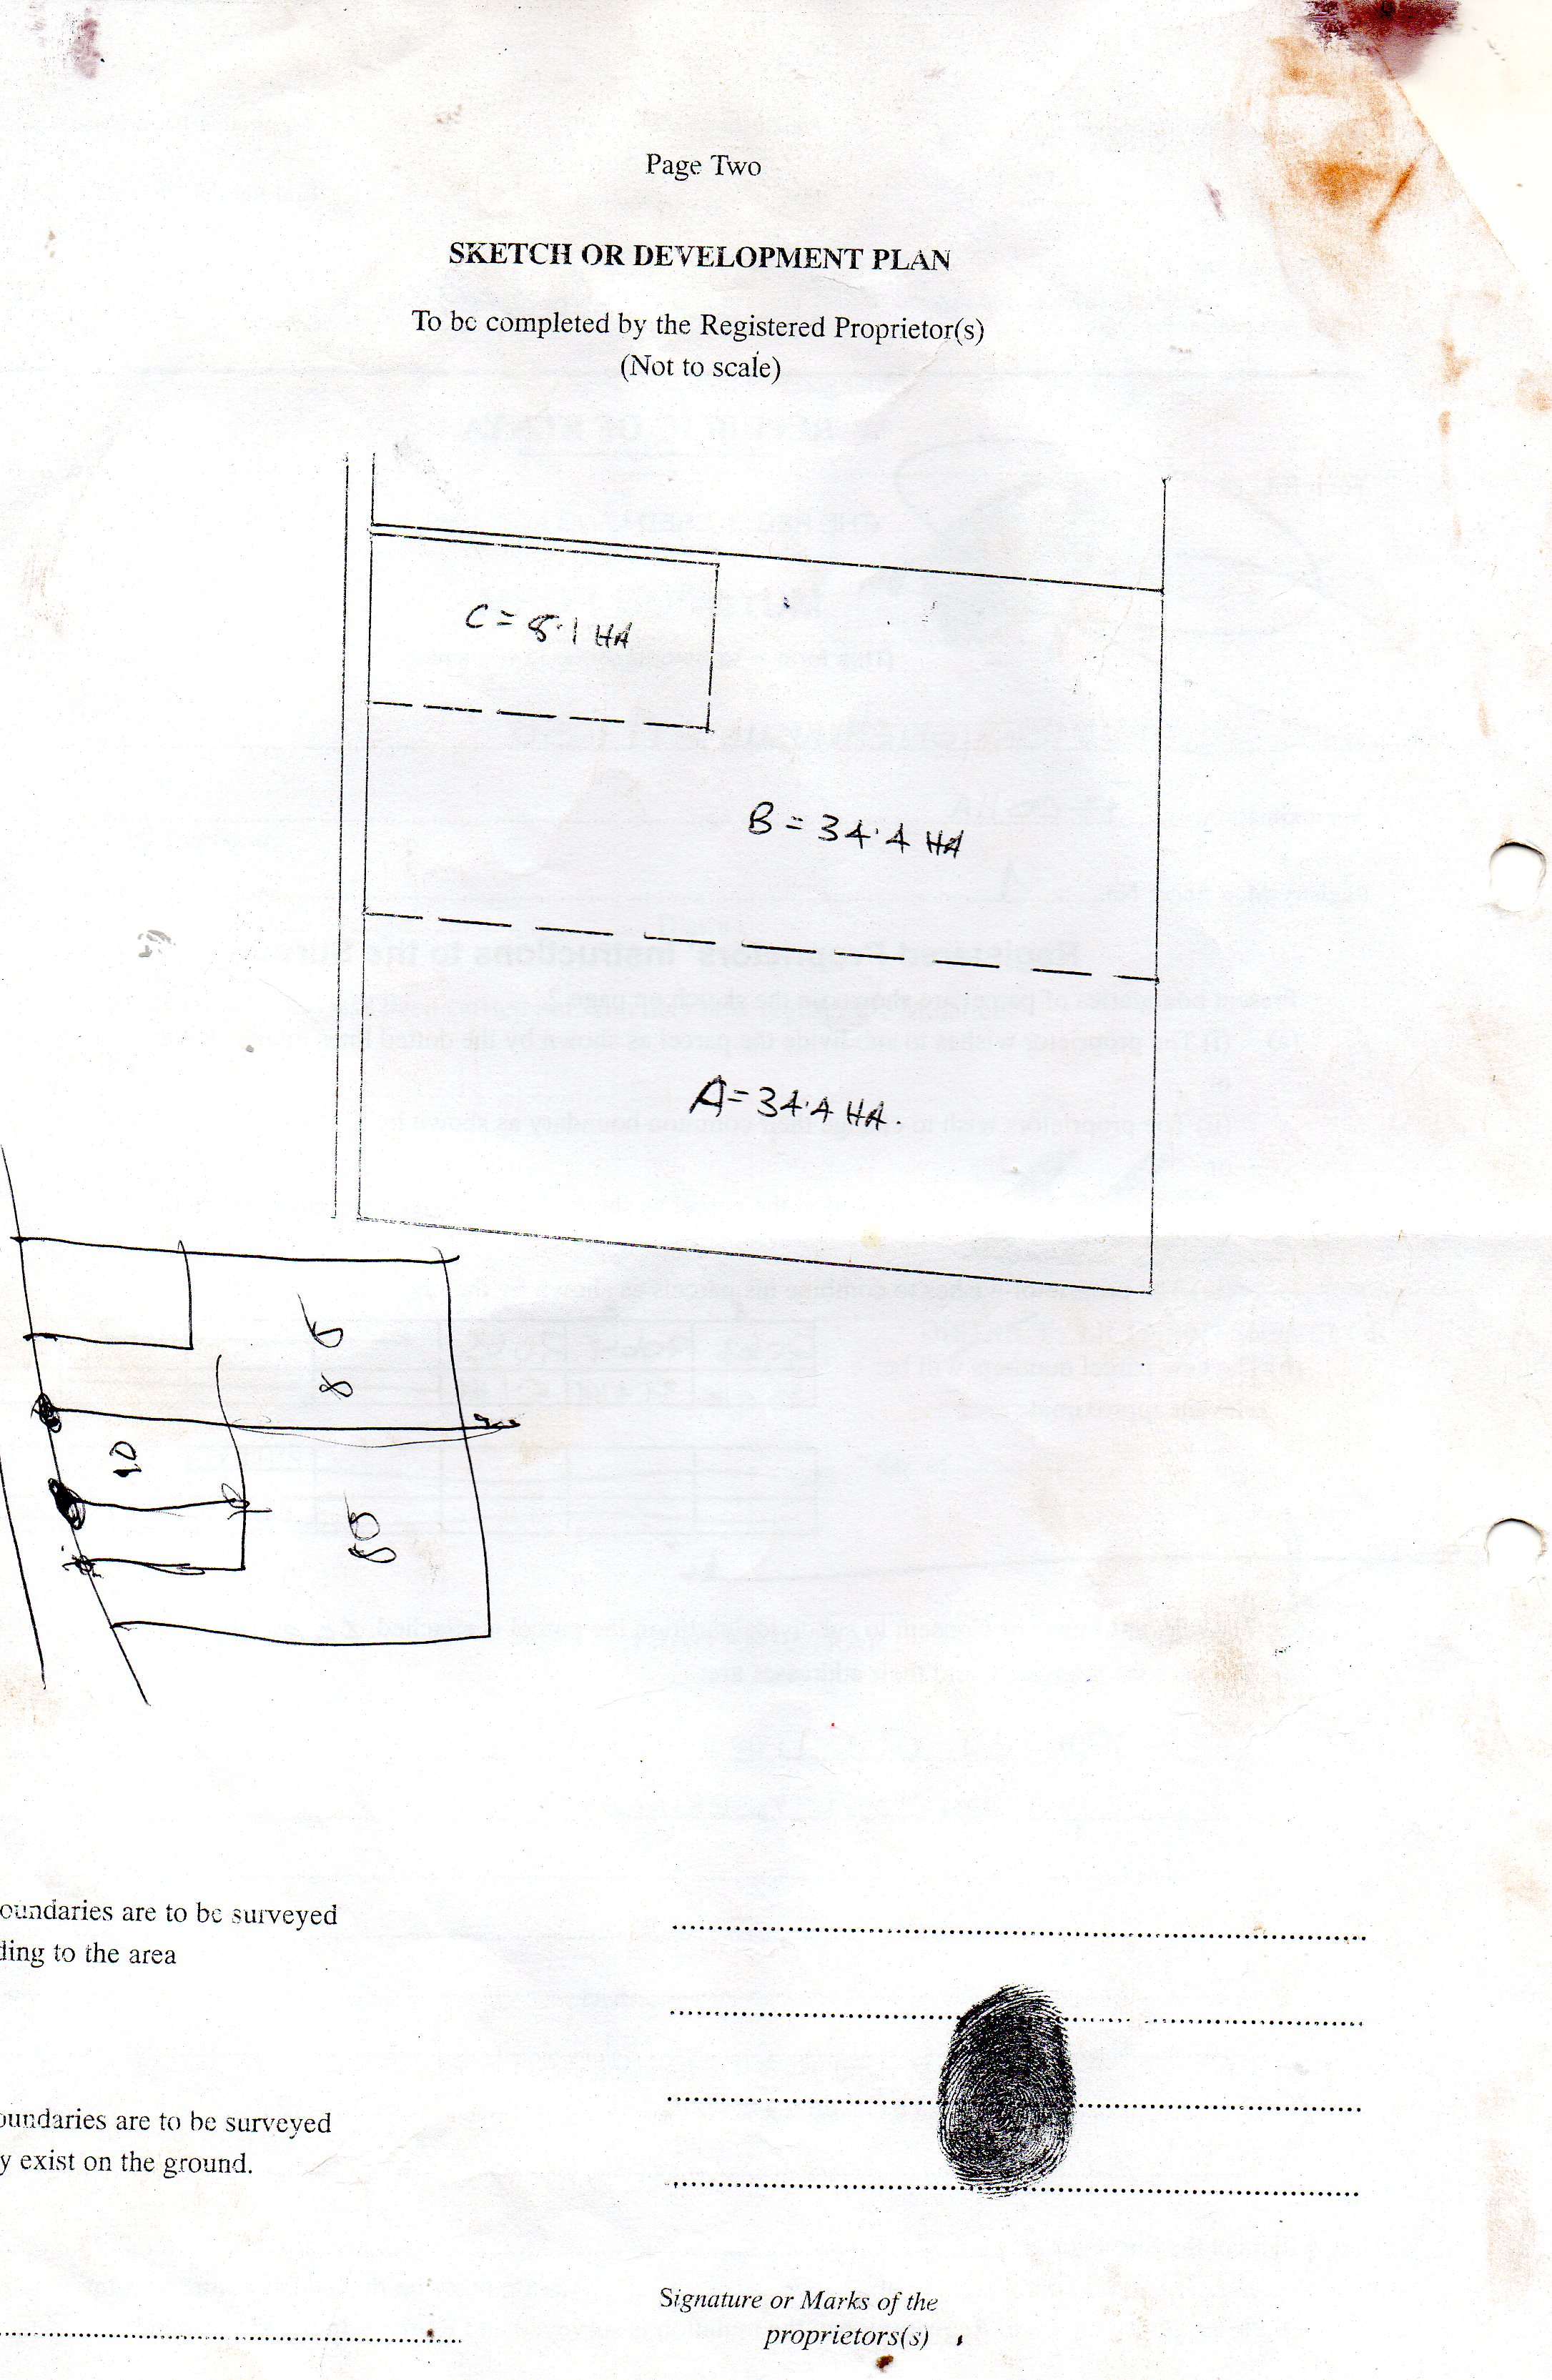 Page Two
SKETCH OR DEVELOPMENT PLAN
To be completed by the Registered Proprietor(s)
(Not to scale)
C = 8.1 HA
B = 34.4 HA
A = 34.4 HA.
85
10
85
oundaries are to be surveyed
ding to the area
oundaries are to be surveyed
y exist on the ground.
Signature or Marks of the
proprietors(s)